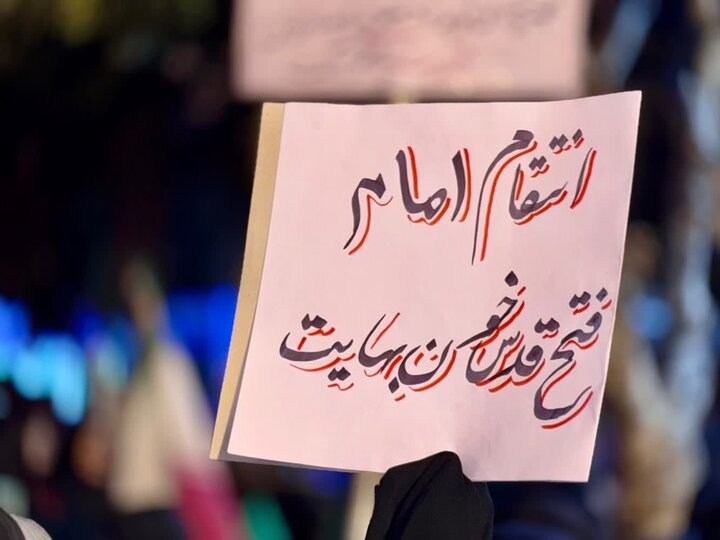 انتقام امام
فتح قدس خون بهایت